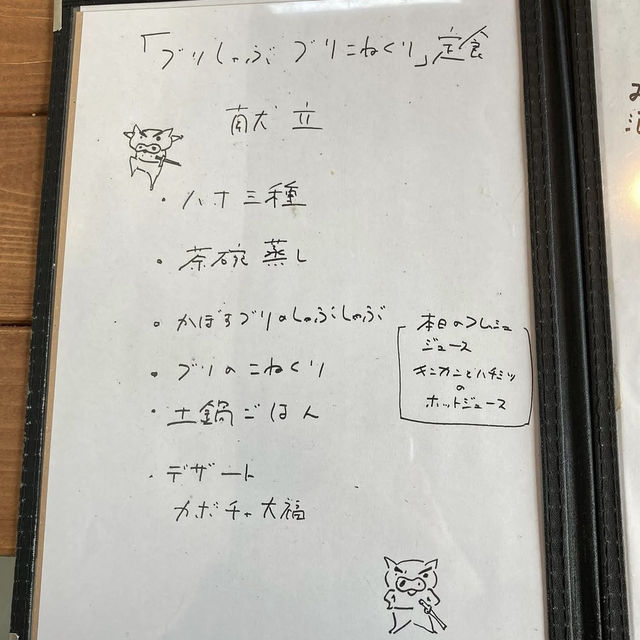 「ブリしゃぶ ブリこねくり」定食
献立
・八寸三種
・茶碗蒸し
・かぼすブリのしゃぶしゃぶ
・ブリのこねくり
・土鍋ごはん
・デザート
カボチャ大福
本日のフレッシュ
ジュース
キンカンとハチミツ
の
ホットジュース